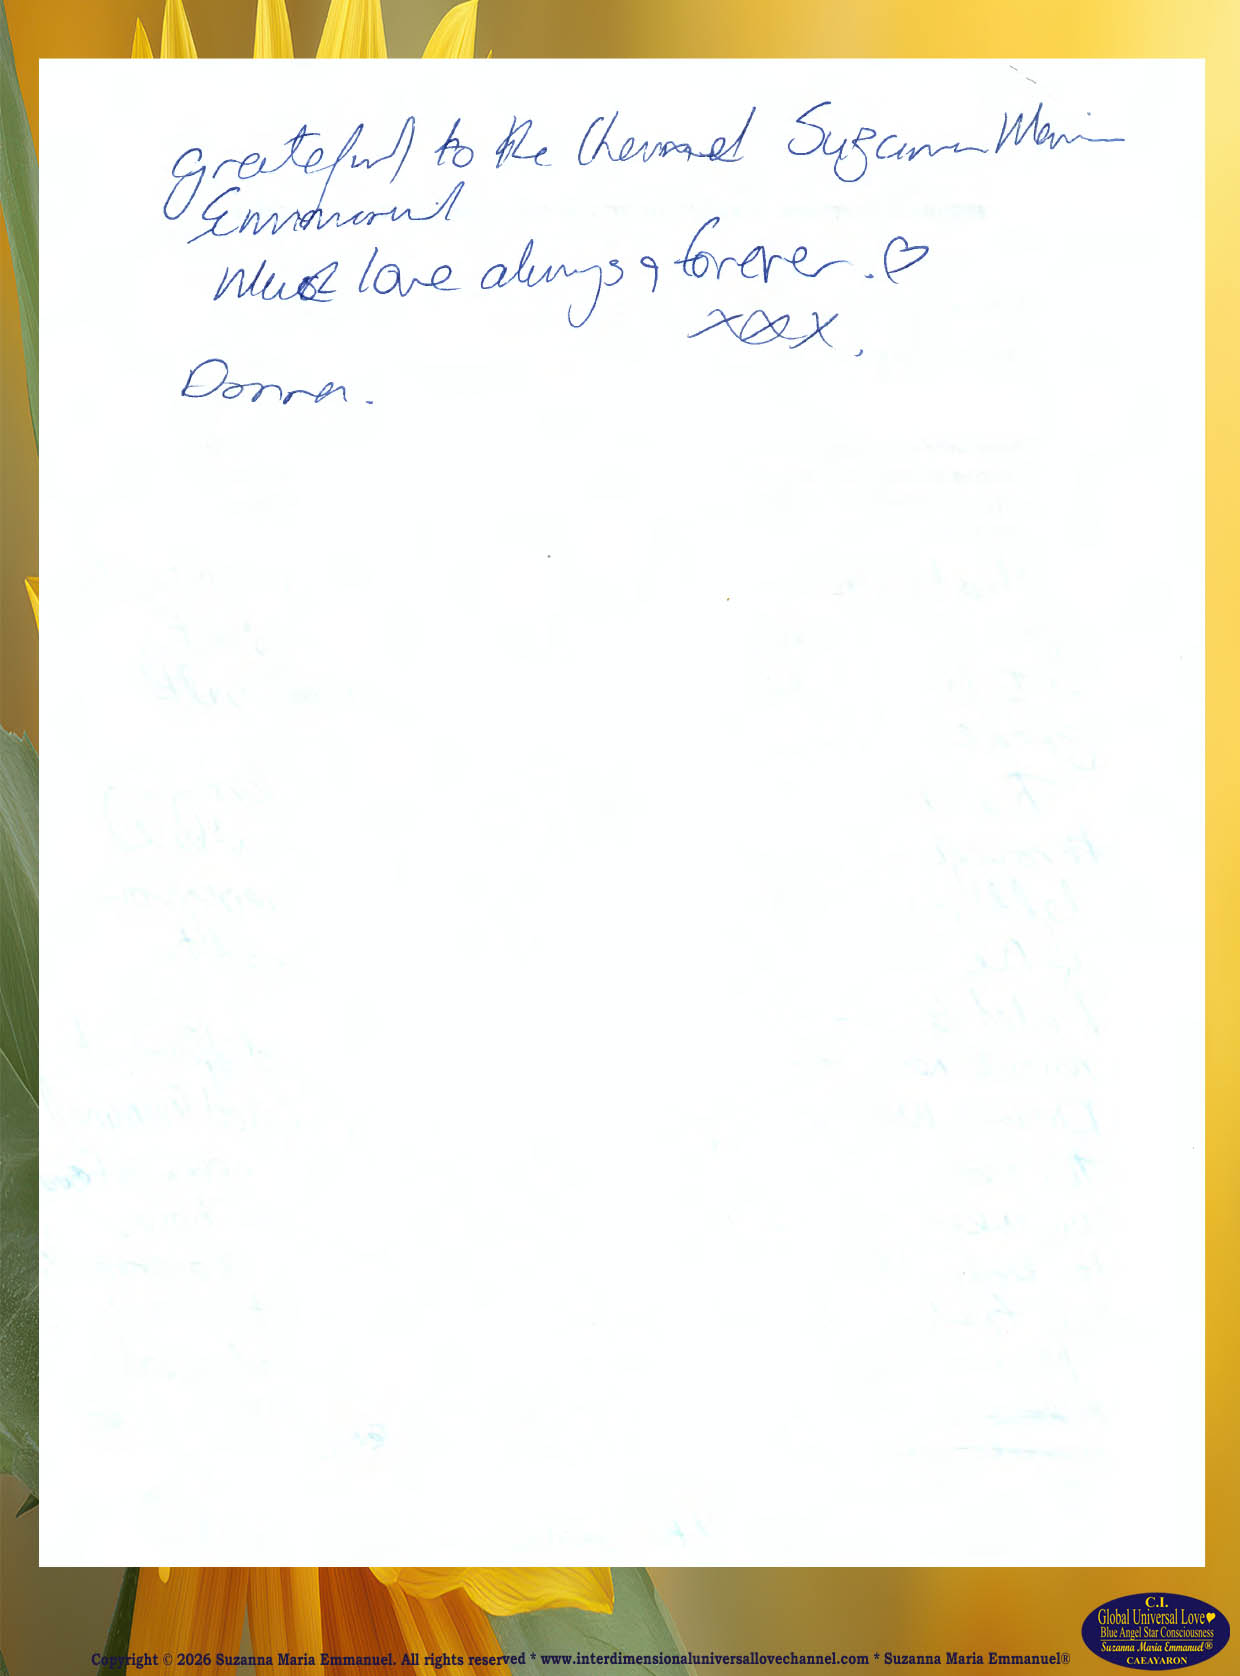 grateful to the Channel Suzanna Maria
Emmanuel
Much love always & forever. ♡
xxx.
Donna.
C.I.
Global Universal Love♥
Blue Angel Star Consciousness
Suzanna Maria Emmanuel®
CAEAYARON
Copyright © 2026 Suzanna Maria Emmanuel. All rights reserved * www.interdimensionaluniversallovechannel.com * Suzanna Maria Emmanuel®